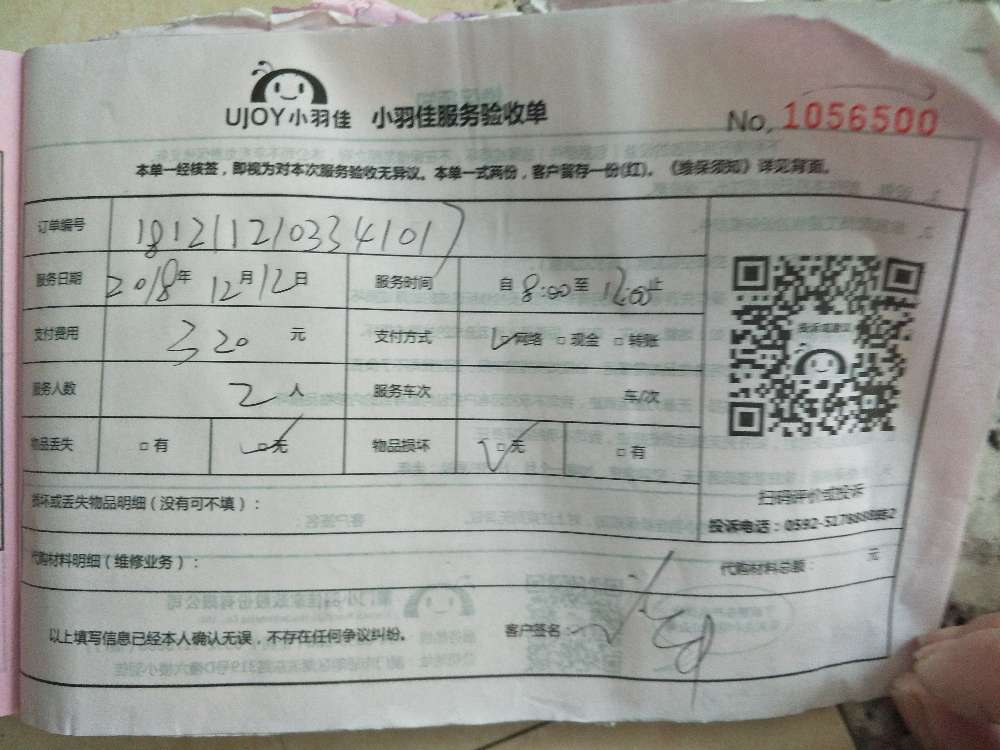 UJOY小羽佳 小羽佳服务验收单 No. 1056500
本单一经核签，即视为对本次服务验收无异议。本单一式两份，客户留存一份(红)。《维保须知》详见背面。
订单编号 181211210334101
服务日期 2018年 12月12日 服务时间 自 8:00至 12:00止
支付费用 320 元 支付方式 □网络 □现金 □转账
投诉或建议
服务人数 2 人 服务车次 车/次
物品丢失 □有 □无 物品损坏 □无 □有
损坏或丢失物品明细（没有可不填）：
扫码评价或投诉
投诉电话：0592-
代购材料明细（维修业务）：
代购材料总额： 元
以上填写信息已经本人确认无误，不存在任何争议纠纷。 客户签名：